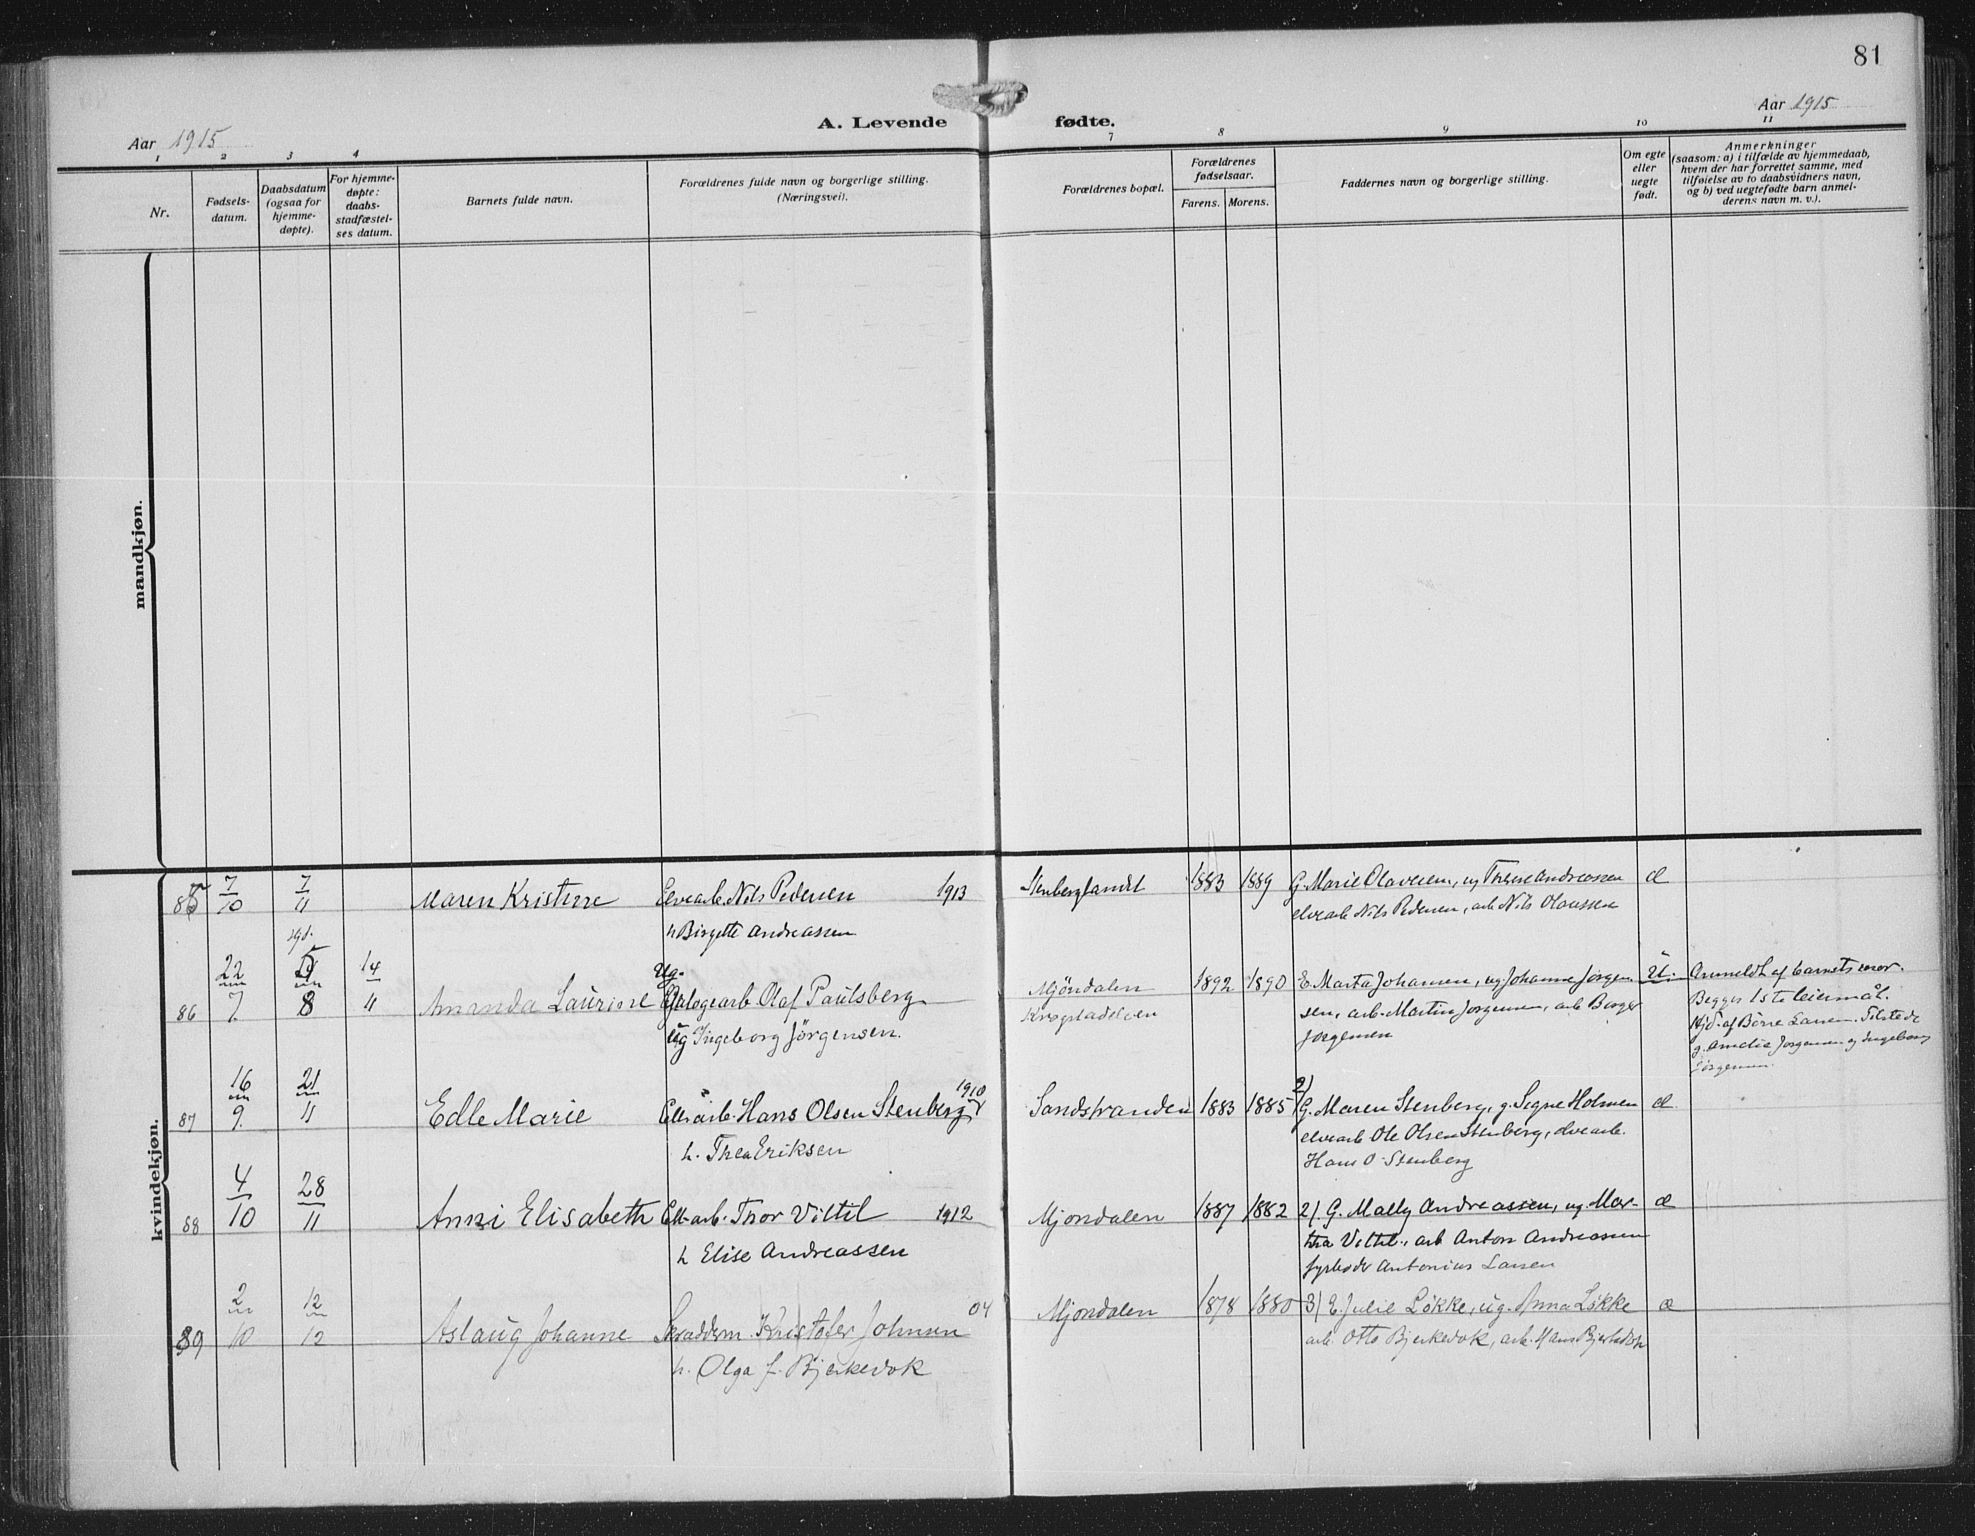 81
Aar 1915
A. Levende fødte.
Aar 1915
1 2 3 4 7 8 9 10 11
Nr.
Fødsels-
datum.
Daabsdatum
(ogsaa for
hjemme-
døpte).
For hjemme-
døpte:
daabs-
stadfæstel-
ses datum.
Barnets fulde navn.
Forældrenes fulde navn og borgerlige stilling.
(Næringsvei).
Forældrenes bopæl.
Forældrenes
fødselsaar.
Farens. Morens.
Faddernes navn og borgerlige stilling.
Om egte
eller
uegte
født.
Anmerkninger
(saasom: a) i tilfælde av hjemmedaab,
hvem der har forrettet samme, med
tilføielse av to daabsvidners navn,
og b) ved uegtefødte barn anmel-
derens navn m. v.).
mandkjøn.
kvindekjøn.
85 7/10 7/11 Maren Kristine Elvearb. Nils Pedersen 1913 Stenberglandet 1883 1889 G. Marie Olavesen, ug Therese Andreassen æ
h Birgette Andreassen elvearb Nils Pedersen, arb Nils Olaussen
86 22/7 8 14/11 Amanda Laurine Ug. Olaf Paulsberg Mjöndalen 1892 1890 E. Marta Johansen, ug Johanne Jørgen- Anmeldt af barnets mor.
Krogstadelven sen, arb. Martin Jorgensen, arb Borger Begges 1ste leiermål.
ug Ingeborg Jörgensen. Jorgensen Hjd. af Börre Larsen. Tilstede
g. Amelia Jorgensen og Ingeborg
Jörgensen.
87 16/9 21/11 Edle Marie Elvearb. Hans Olsen Stenberg 1910 Sandstranden 1883 1885 2) G. Maren Stenberg, g. Signe Holmen æ
h. Thea Eriksen elvearb Ole Olsen Stenberg, elvearb.
Hans O. Stenberg
88 4/10 28/11 Anni Elisabeth Elvarb. Thor Vittil 1912 Mjondalen 1887 1882 2) G. Mally Andreassen, ug Mar- æ
h Elise Andreassen tha Vittil, arb Anton Andreassen
fyrbøder Antonius Larsen
89 2/10 12/12 Aslaug Johanne Skræddern. Kristofer Johnsen 04 Mjondalen 1878 1880 3) E. Julie Løkke, ug. Anna Løkke æ
h. Olga f. Bjerkevok arb. Otto Bjerkevok, arb. Hans